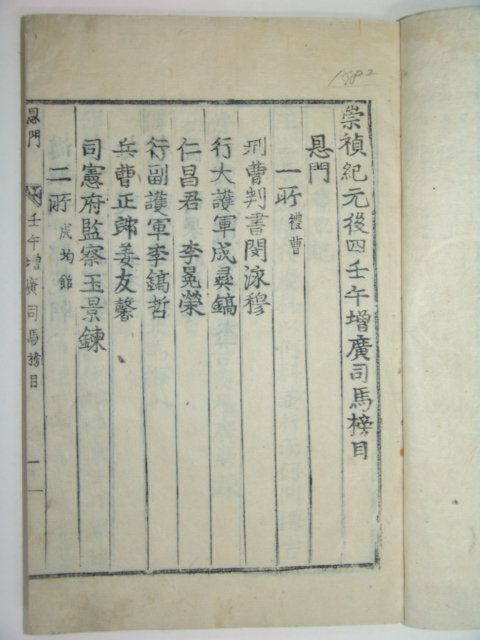 崇禎紀元後四壬午增廣司馬榜目
恩門
一所 禮曹
刑曹判書閔泳穆
行大護軍成彛鎬
仁昌君李冕榮
行副護軍李鎬哲
兵曹正郎姜友馨
司憲府監察玉景鍊
二所 成均館
恩門
壬午增廣司馬榜目
一